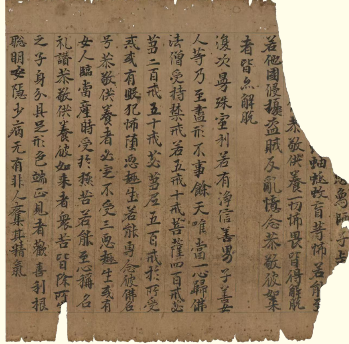 蚰蜒蚊盲等怖若能至
恭敬供養一切怖畏皆得解脫
若他國侵擾盜賊反亂憶念恭敬彼如來
者皆亦解脫
復次曼殊室利若有淨信善男子善女
人等乃至盡形不事餘天唯當一心歸佛
法僧受持禁戒若五戒十戒菩薩四百戒苾
芻二百五十戒苾芻尼五百戒於所受
中或有毀犯怖墮惡趣若能專念彼佛名
號恭敬供養者必定不受三惡趣生或有
女人臨當產時受於極苦若能至心稱名
礼讚恭敬供養彼如來者衆苦皆除所
之子身分具足形色端正見者歡喜利根
聰明安隱少病无有非人奪其精氣